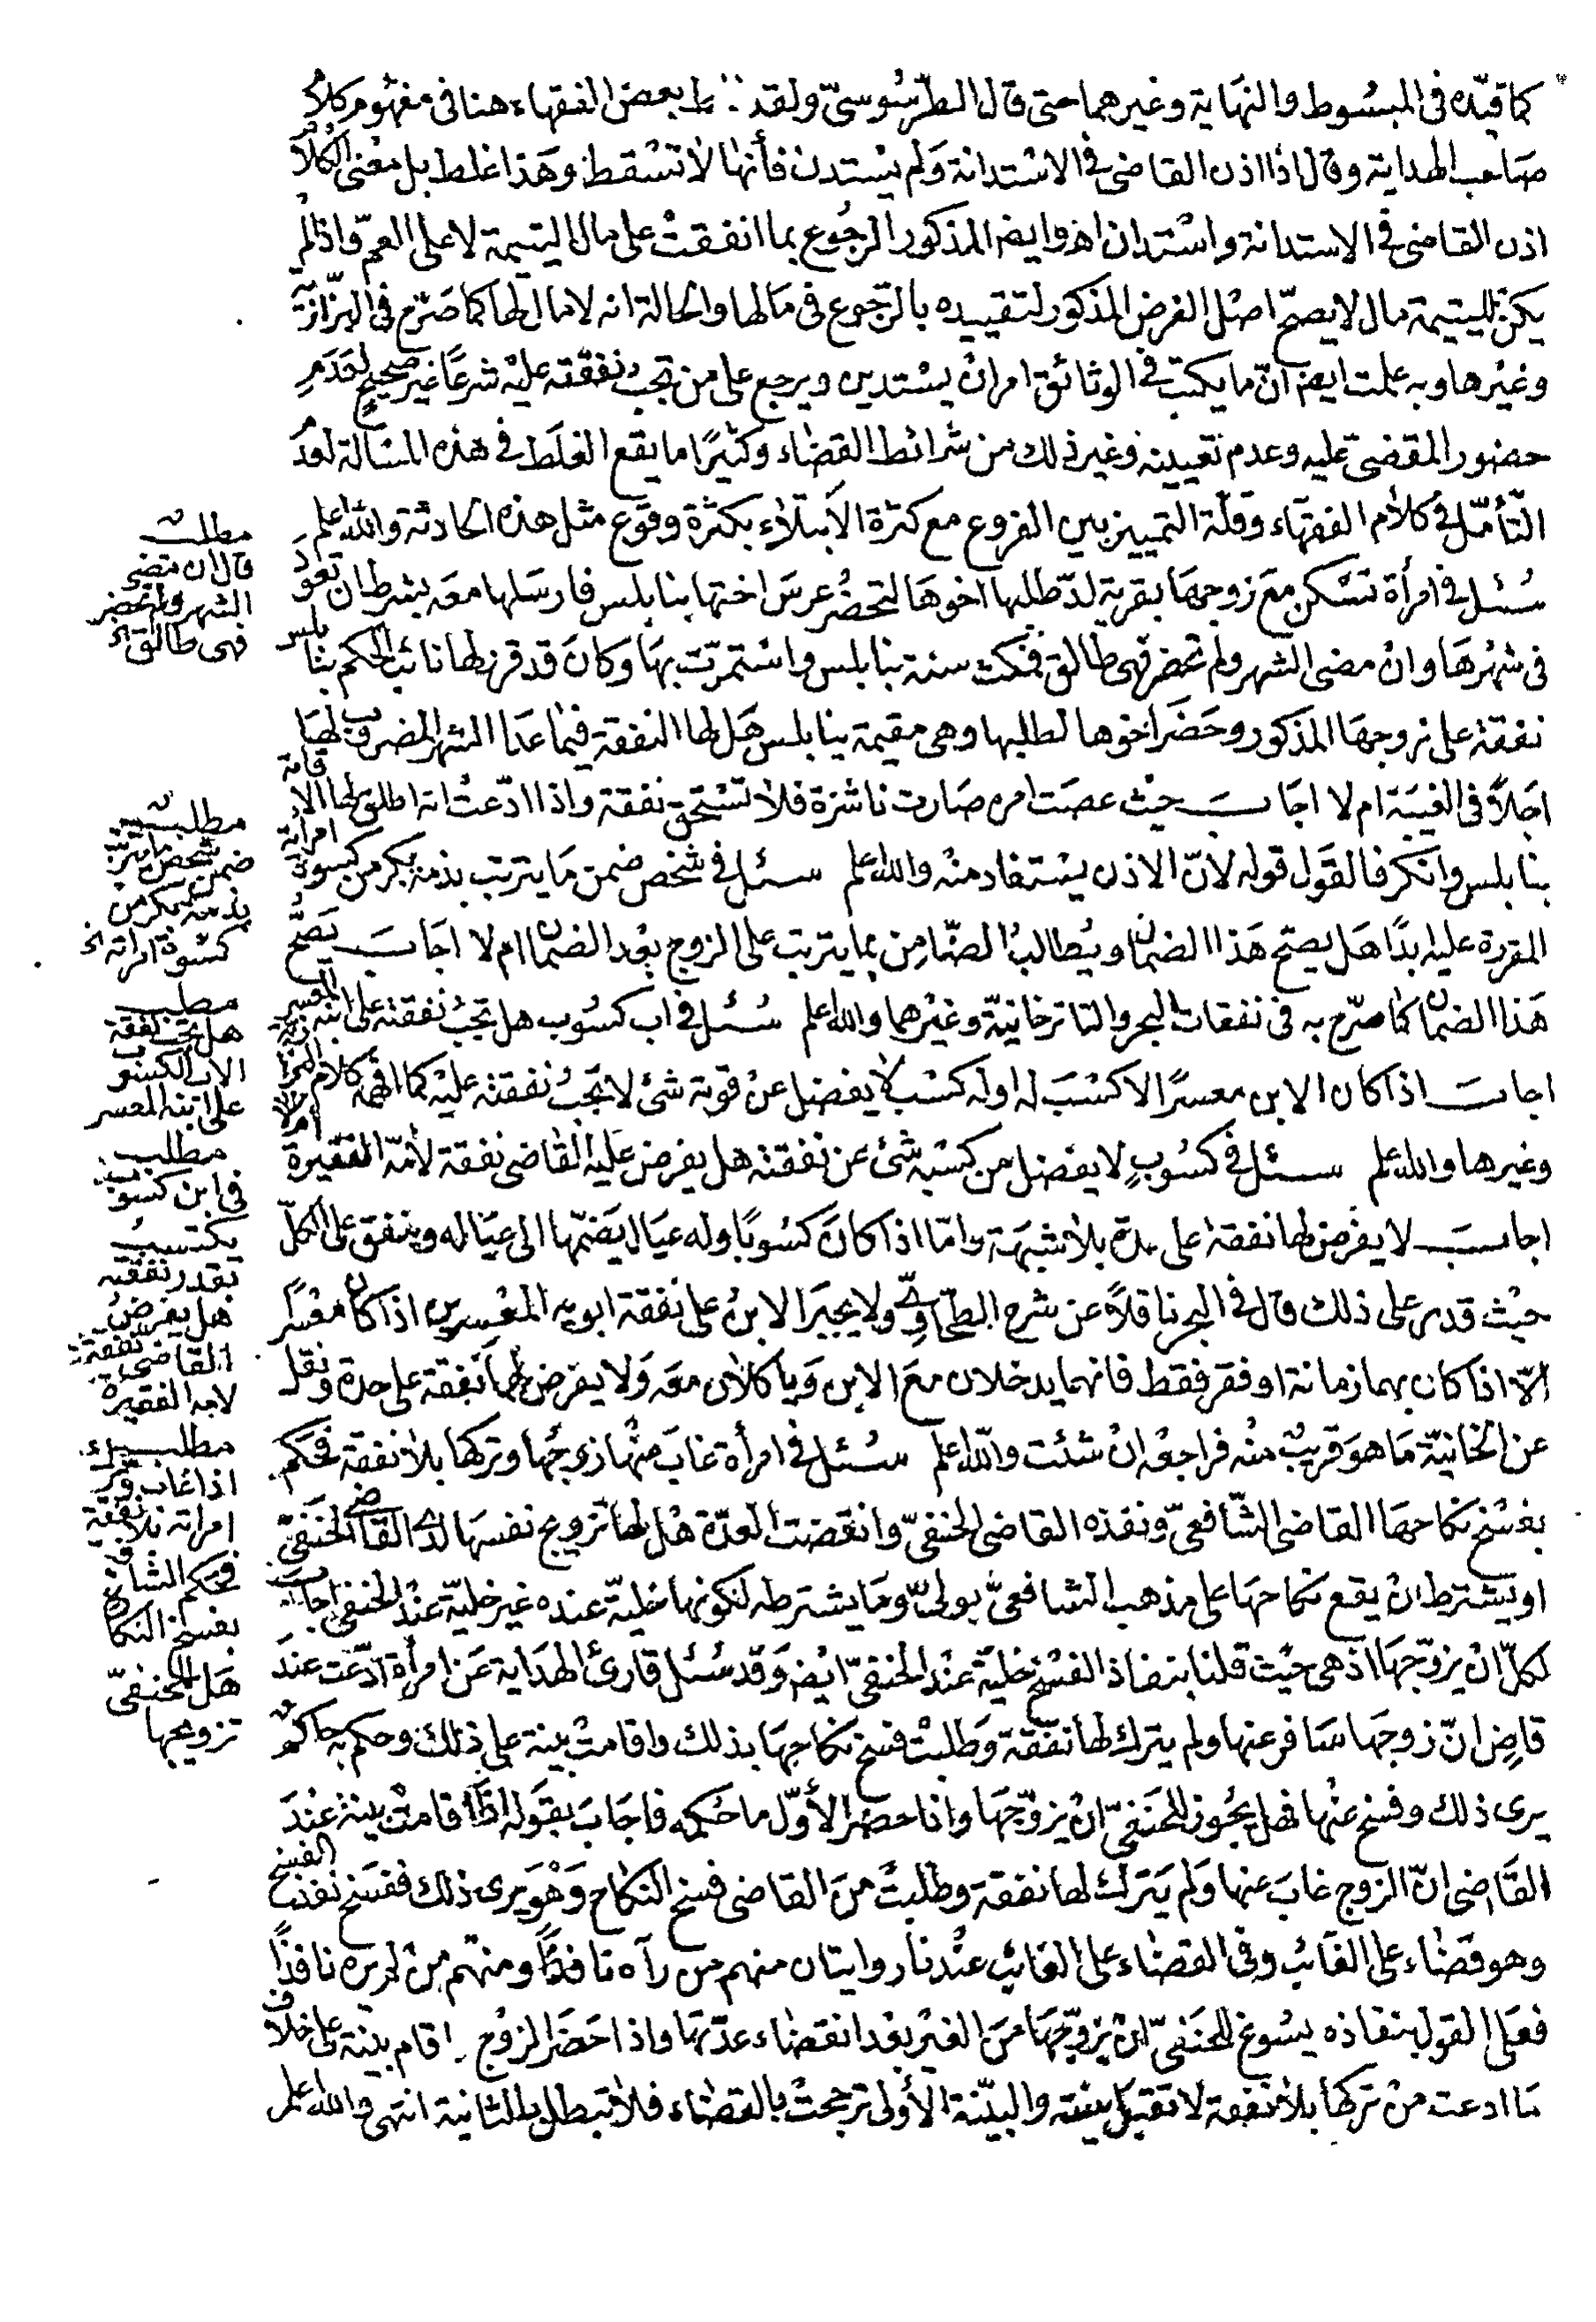 كما قيده في المبسوط والنهاية وغيرهما حتى قال الطرسوسي ولقد بعض الفقهاء هنا في مفهوم كلام
صاحب الهداية وقال اذا اذن القاضي في الاستدانة ولم يستدن فأنها لا تسقط وهذا غلط بل معنى الكلام
اذن القاضي في الاستدانة واستدان اه وايضا المذكور الرجوع بما انفقت على مال اليتيمة لا على العم واذا لم
يكن لليتيمة مال لا يصح اصل الفرض المذكور لتقييده بالرجوع في مالها والحالة انه لا مال لها كما صرح في البزازية
وغيرها وبه علمت ايضا ان ما يكتب في الوثائق امر ان يستدين ويرجع على من تجب نفقته عليه شرعا غير صحيح لعدم
حضور المقضي عليه وعدم تعيينه وغير ذلك من شرائط القضاء وكثيرا ما يقع الغلط في هذه المسألة لعدم
التأمل في كلام الفقهاء وقلة التمييز بين الفروع مع كثرة الابتلاء بكثرة وقوع مثل هذه الحادثة والله اعلم
سئل في امرأة تسكن مع زوجها بقرية لد طلبها اخوها لتحضر عرس اختها بنابلس فارسلها معه بشرط ان تعود
في شهرها وان مضى الشهر ولم تحضر فهي طالق فمكث سنة بنابلس واستمرت بها وكان قد قرر لها نائب الحكم بنابلس
نفقة على زوجها المذكور وحضر اخوها لطلبها وهي مقيمة بنابلس هل لها النفقة فيما عدا الشهر المضروب لها
اجلا في الغيبة ام لا اجاب حيث عصت امره صارت ناشزة فلا تستحق نفقة واذا ادعت انه اطلق لها الاقامة
بنابلس وانكر فالقول قوله لان الاذن يستفاد منه والله اعلم سئل في شخص ضمن ما يترتب بذمة بكر من كسوة امرأته
المقررة عليه ابدا هل يصح هذا الضمان ويطالب الضامن بما يترتب على الزوج بعد الضمان ام لا اجاب يصح
هذا الضمان كما صرح به في نفقات البحر والتاترخانية وغيرهما والله اعلم سئل في اب كسوب هل تجب نفقته على ابنه المعسر
اجاب اذا كان الابن معسرا لا كسب له اوله كسب لا يفضل عن قوته شئ لا تجب نفقته عليه كما افهمه كلام
وغيرها والله اعلم سئل في كسوب لا يفضل من كسبه شئ عن نفقته هل يفرض عليه القاضي نفقة لأمه الفقيرة ام لا
اجاب لا يفرض لها نفقة على حدة بلا شبهة واما اذا كان كسوبا وله عيال يضمها الى عياله وينفق على الكل
حيث قدر على ذلك قال في البحر ناقلا عن شرح الطحاوي ولا يجبر الابن على نفقة ابويه المعسرين اذا كان معسرا
الا اذا كان بهما زمانة او فقر فقط فانهما يدخلان مع الابن ويأكلان معه ولا يفرض لهما نفقة على حدة ونقل
عن الخانية ما هو قريب منه فراجعه ان شئت والله اعلم سئل في امرأة غاب عنها زوجها وتركها بلا نفقة فحكم
بفسخ نكاحها القاضي الشافعي ونفذه القاضي الحنفي وانقضت العدة هل لها تزويج نفسها لدى القاضي الحنفي
او يشترط ان يقع نكاحها على مذهب الشافعي بولي وما يشترطه لكونها خلية عنده غير خلية عند الحنفي اجاب
لكل ان يزوجها اذ هي حيث قلنا بنفاذ الفسخ خلية عند الحنفي ايضا وقد سئل قارئ الهداية عن امرأة ادعت عند
قاض ان زوجها سافر عنها ولم يترك لها نفقة وطلبت فسخ نكاحها بذلك واقامت بينة على ذلك وحكم به حاكم
يرى ذلك وفسخ عنها فهل يجوز للحنفي ان يزوجها واذا حضر الأول ما حكمه فاجاب بقوله اذا اقامت بينة عند
القاضي ان الزوج غاب عنها ولم يترك لها نفقة وطلبت من القاضي فسخ النكاح وهو يرى ذلك ففسخ نفذ الفسخ
وهو قضاء على الغائب وفي القضاء على الغائب عندنا روايتان منهم من رآه نافذا ومنهم من لم يره نافذا
فعلى القول بنفاذه يسوغ للحنفي ان يزوجها من الغير بعد انقضاء عدتها واذا حضر الزوج اقام بينة على خلاف
ما ادعت من تركها بلا نفقة لا تقبل بينته والبينة الأولى ترجحت بالقضاء فلا تبطل بالثانية انتهى والله اعلم
مطلب
قال ان مضى
الشهر ولم تحضر
فهي طالق الخ
مطلب
ضمن شخص ما يترتب
بذمة بكر من
كسوة امراته الخ
مطلب
هل تجب نفقة
الاب الكسوب
على ابنه المعسر
مطلب
في ابن كسوب
يكتسب
بقدر نفقته
هل يفرض
القاضي نفقة
لامه الفقيرة
مطلب
اذا غاب وترك
امراته بلا نفقة
فحكم الشافعي
بفسخ النكاح
هل للحنفي
تزويجها